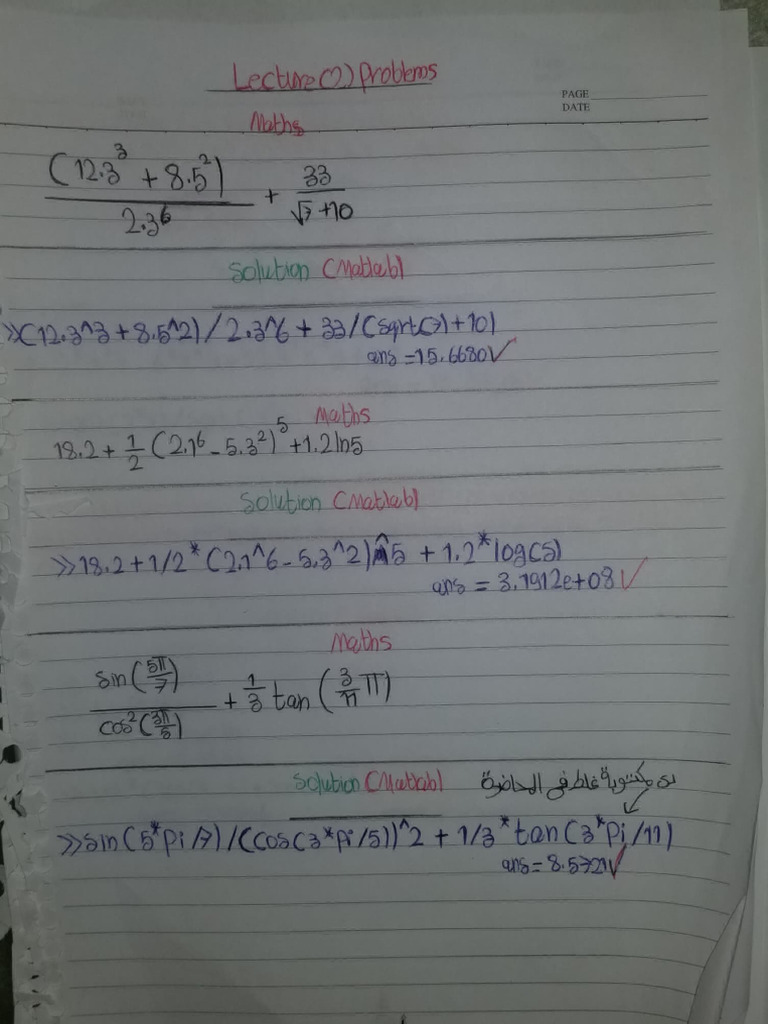 Lecture problems
PAGE
DATE
Maths
(12.3³ + 8.5²) / 2.3⁶ + 33 / √7+10
Solution (Matlab)
>>(12.3^3 + 8.5^2) / 2.3^6 + 33/(sqrt(7)+10)
ans = 15.6680✓
Maths
18.2 + 1/2 (2.1⁶ - 5.3²)⁵ + 1.2 ln5
Solution (Matlab)
>>18.2+1/2*(2.1^6-5.3^2)^5 + 1.2*log(5)
ans = 3.1912e+08✓
Maths
sin(5π/7) / cos²(3π/5) + 1/3 tan(3/11 π)
Solution (Matlab) دى مكتوبة غلط فى المحاضرة
>>sin(5*pi/7)/(cos(3*pi/5))^2 + 1/3*tan(3*pi/11)
ans = 8.5721✓